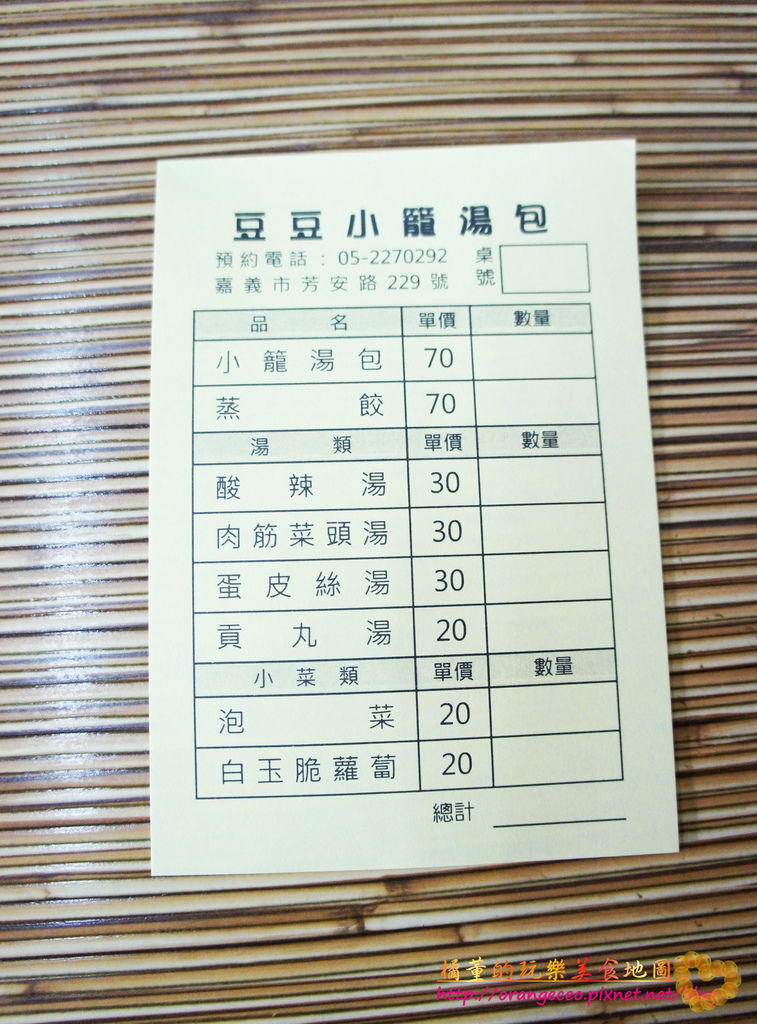 豆豆小籠湯包
預約電話：05-2270292 桌號
嘉義市芳安路229號
品名 單價 數量
小籠湯包 70
蒸餃 70
湯類 單價 數量
酸辣湯 30
肉筋菜頭湯 30
蛋皮絲湯 30
貢丸湯 20
小菜類 單價 數量
泡菜 20
白玉脆蘿蔔 20
總計
橘董的玩樂美食地圖
http://orangeceo.pixnet.net/blog